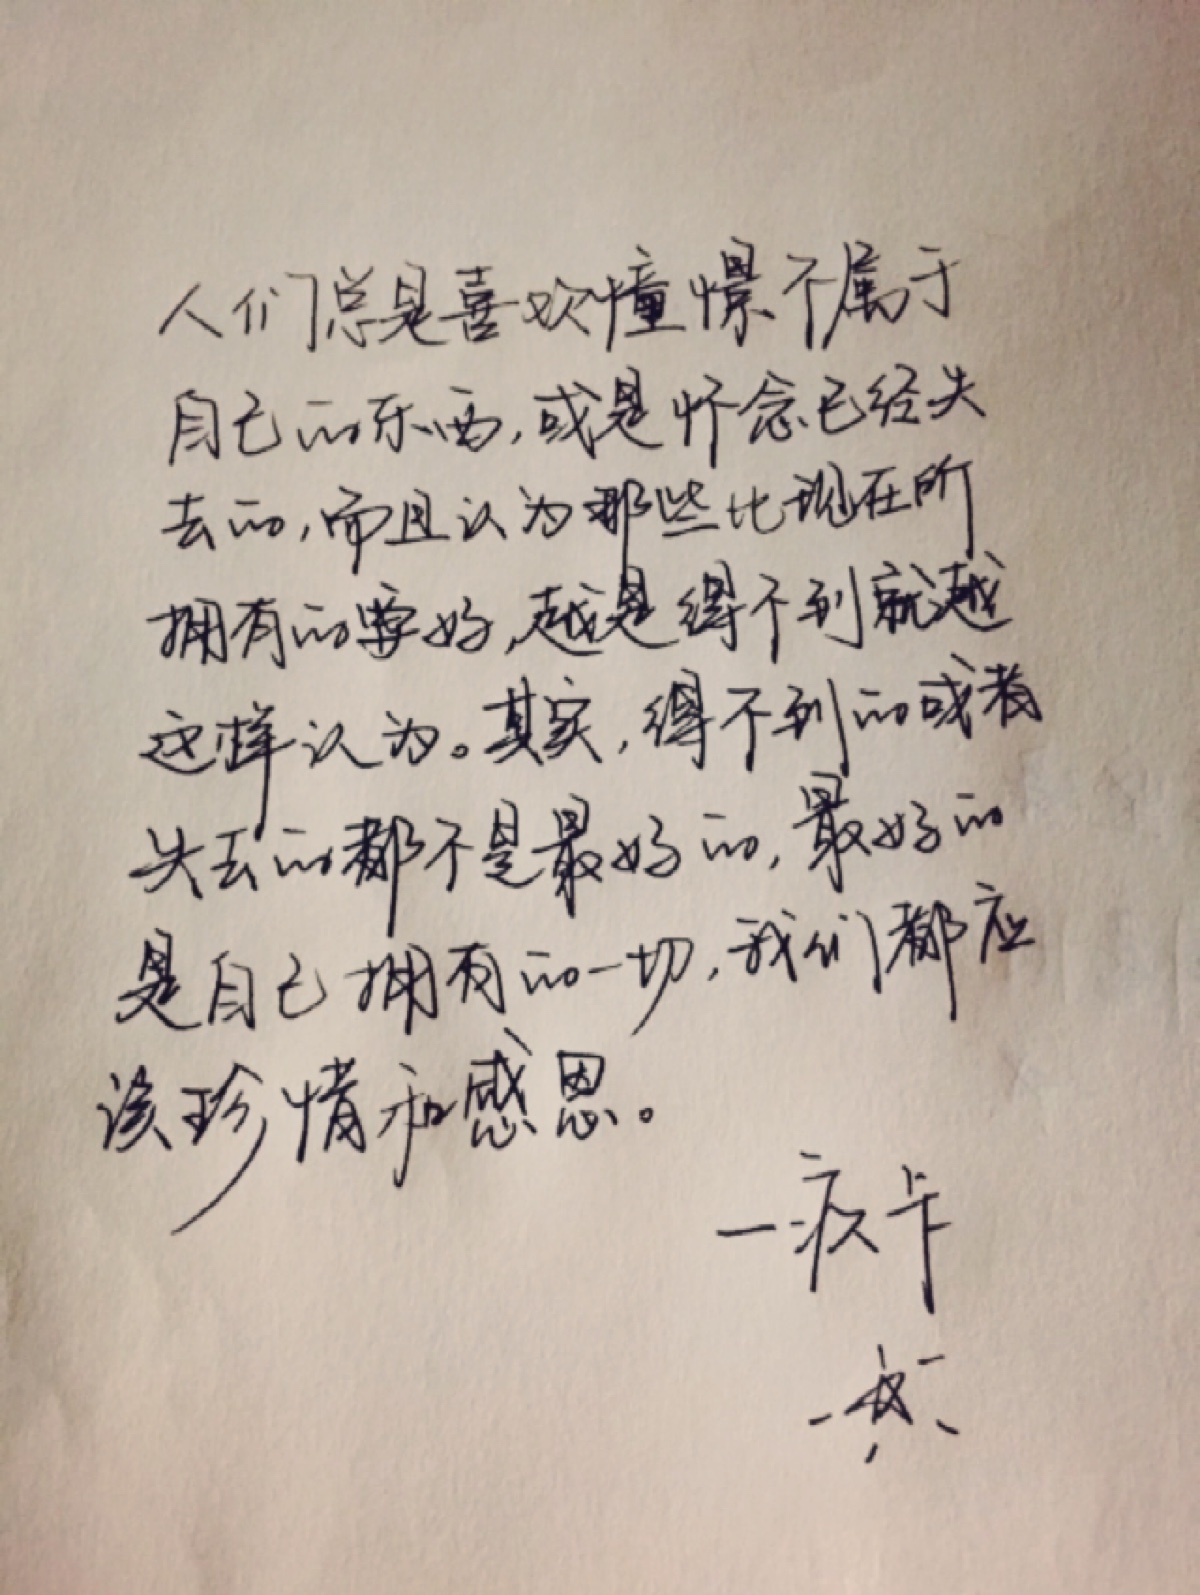 人们总是喜欢憧憬不属于
自己的东西，或是怀念已经失
去的，而且认为那些比现在所
拥有的要好，越是得不到就越
这样认为。其实，得不到的或者
失去的都不是最好的，最好的
是自己拥有的一切，我们都应
该珍惜和感恩。